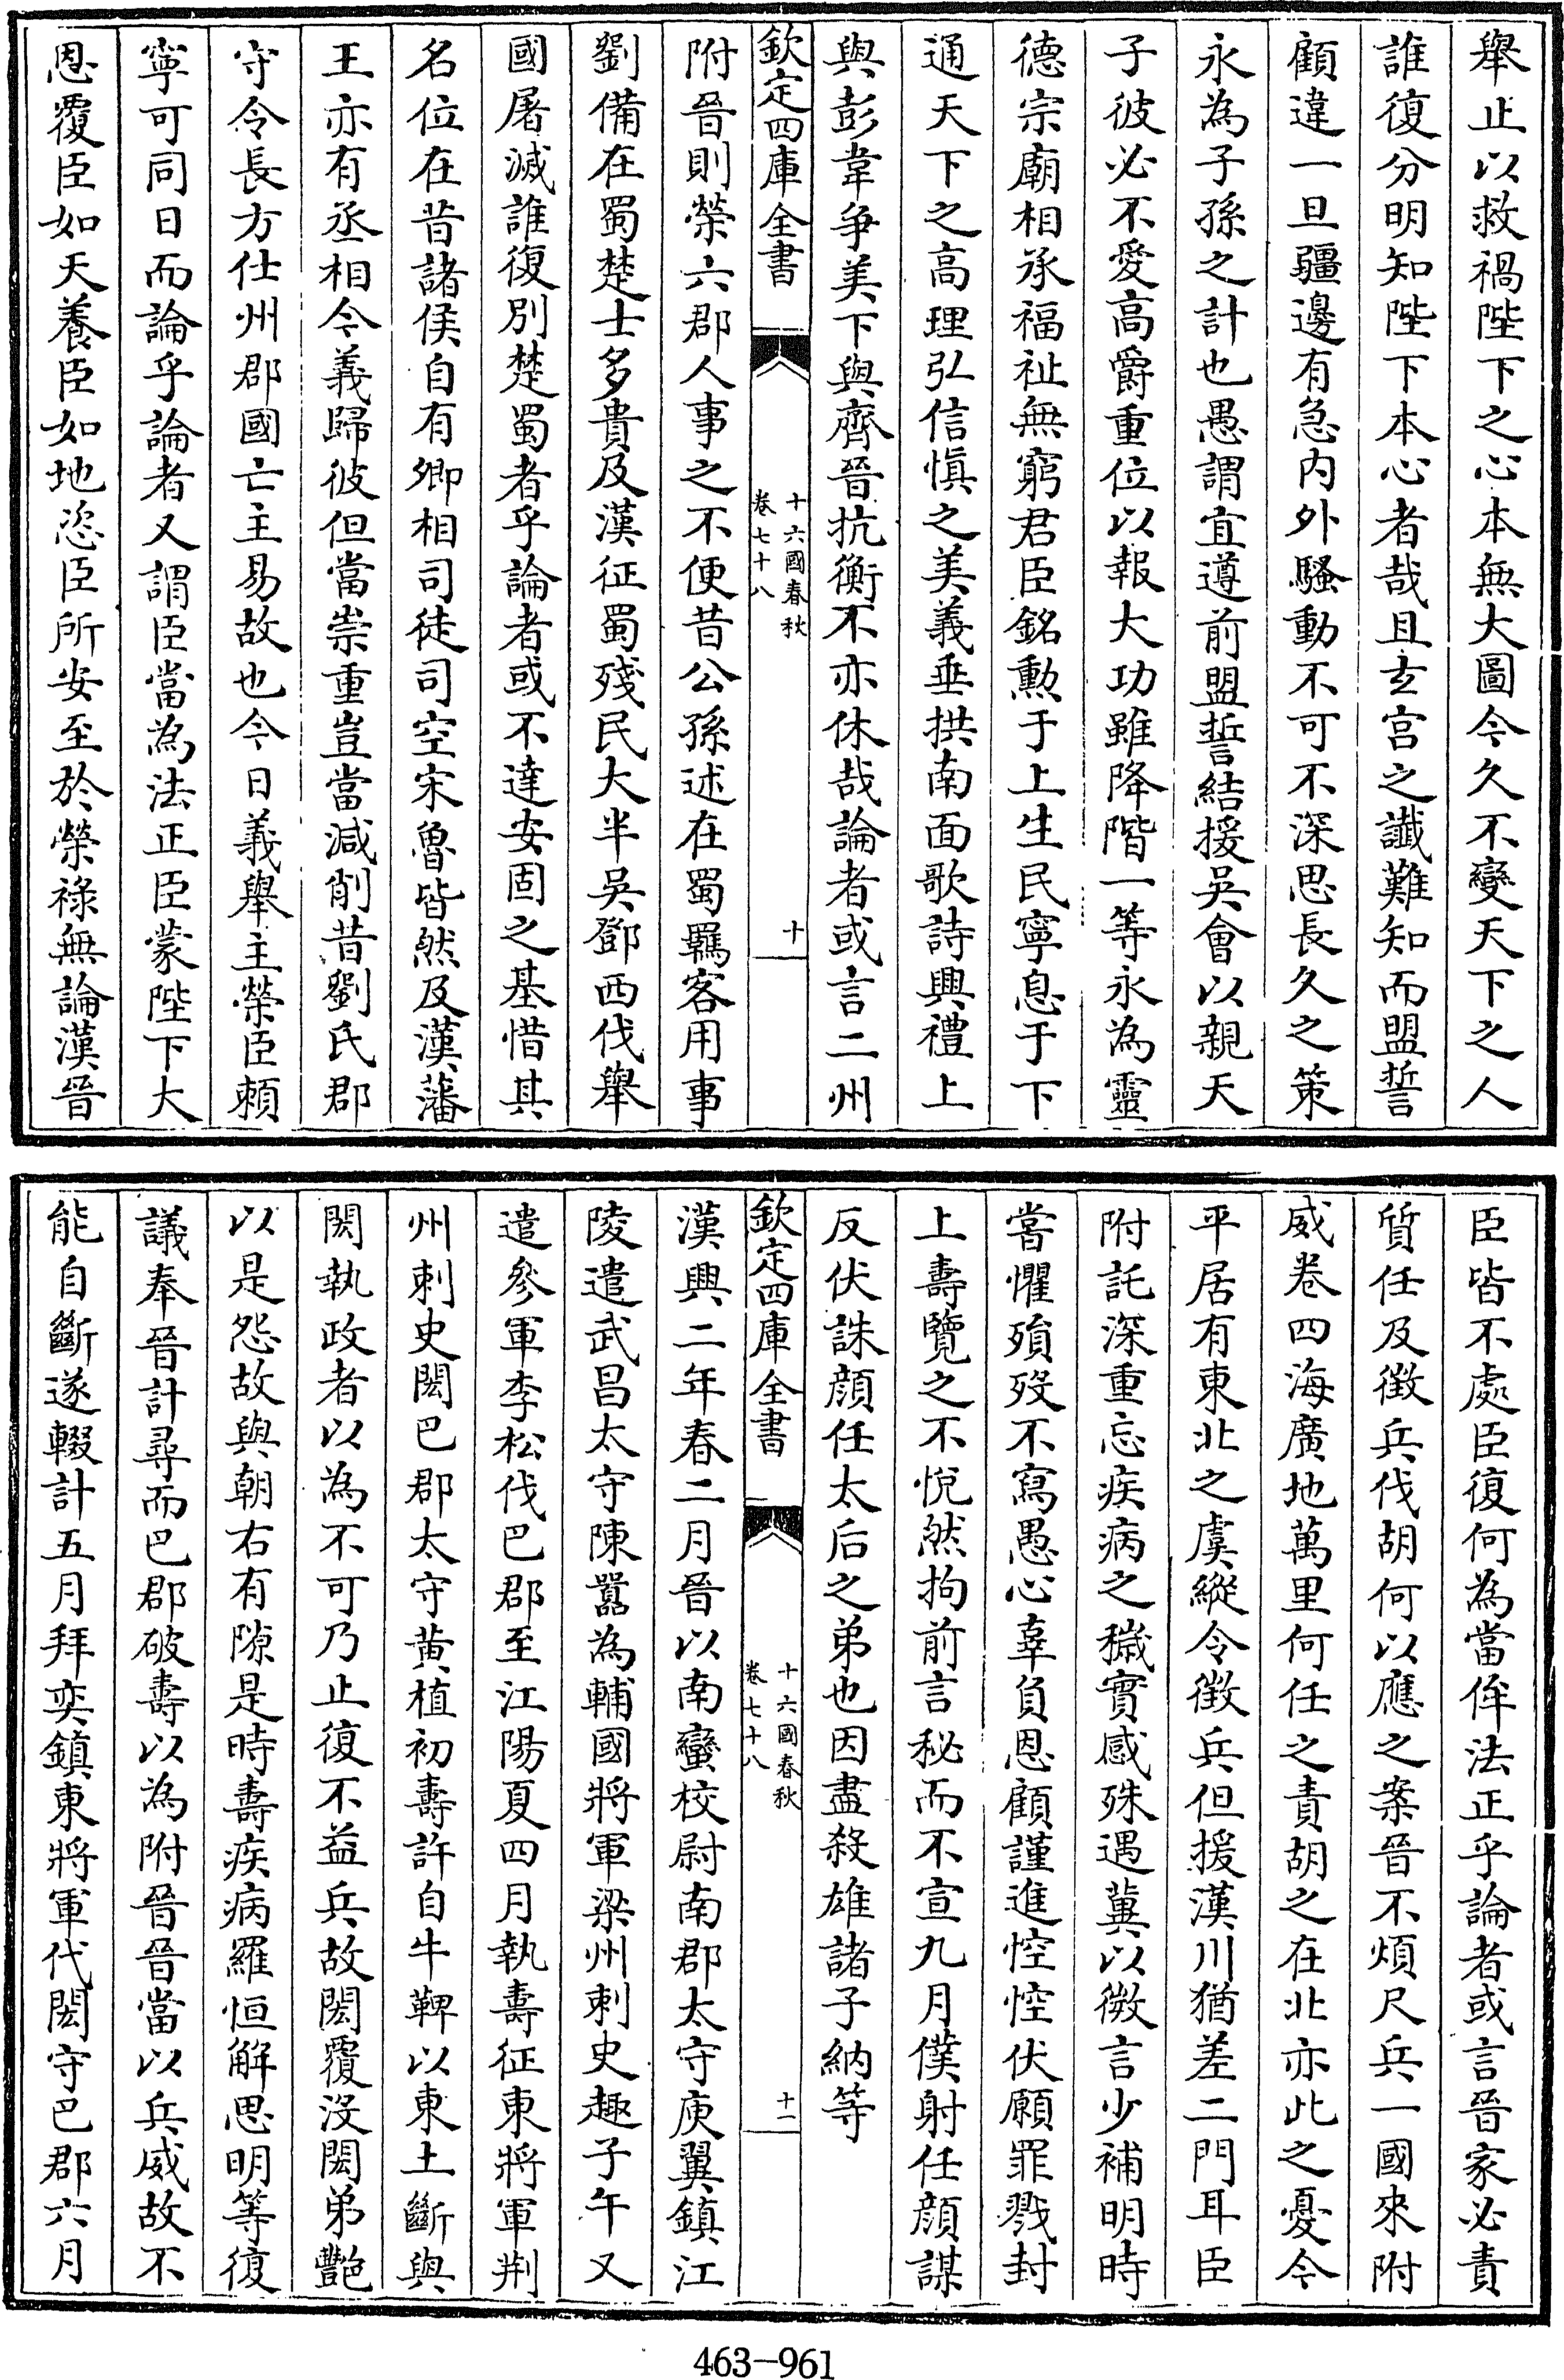 舉止以救禍陛下之心本無大圖今久不變天下之人
誰復分明知陛下本心者哉且玄宫之讖難知而盟誓
顧違一旦疆邊有急内外騷動不可不深思長久之策
永為子孫之計也愚謂宜遵前盟誓結援吳會以親天
子彼必不愛高爵重位以報大功雖降階一等永為靈
德宗廟相承福祉無窮君臣銘勲于上生民寧息于下
通天下之高理弘信慎之美義垂拱南面歌詩興禮上
與彭韋爭美下與齊晉抗衡不亦休哉論者或言二州
欽定四庫全書
十六國春秋
卷七十八
十一
附晉則榮六郡人事之不便昔公孫述在蜀羈客用事
劉備在蜀楚士多貴及漢征蜀殘民大半吳鄧西伐舉
國屠滅誰復別楚蜀者乎論者或不達安固之基惜其
名位在昔諸侯自有卿相司徒司空宋魯皆然及漢藩
王亦有丞相今義歸彼但當崇重豈當減削昔劉氏郡
守令長方仕州郡國亡主易故也今日義舉主榮臣賴
寧可同日而論乎論者又謂臣當為法正臣蒙陛下大
恩覆臣如天養臣如地恣臣所安至於榮祿無論漢晉
臣皆不處臣復何為當侔法正乎論者或言晉家必責
質任及徴兵伐胡何以應之案晉不煩尺兵一國來附
威卷四海廣地萬里何任之責胡之在北亦此之憂今
平居有東北之虞縱令徴兵但援漢川猶差二門耳臣
附託深重忘疾病之穢實感殊遇冀以微言少補明時
嘗懼殞歿不寫愚心辜負恩顧謹進悾悾伏願罪戮封
上壽覽之不悅然拘前言秘而不宣九月僕射任顔謀
反伏誅顔任太后之弟也因盡殺雄諸子納等
欽定四庫全書
十六國春秋
卷七十八
十二
漢興二年春二月晉以南蠻校尉南郡太守庾翼鎮江
陵遣武昌太守陳囂為輔國將軍梁州刺史趣子午又
遣參軍李松伐巴郡至江陽夏四月執壽征東將軍荆
州刺史閎巴郡太守黄植初壽許自牛鞞以東土斷與
閎執政者以為不可乃止復不益兵故閎覆沒閎弟豔
以是怨故與朝右有隙是時壽疾病羅恒解思明等復
議奉晉計尋而巴郡破壽以為附晉晉當以兵威故不
能自斷遂輟計五月拜奕鎮東將軍代閎守巴郡六月
463-961